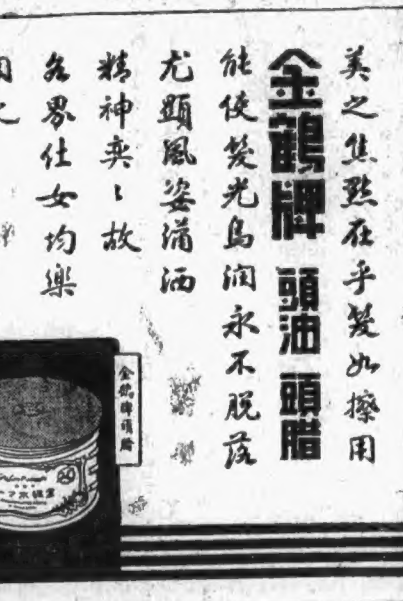 美之焦點在乎髮如擦用
金鶴牌 頭油 頭腊
能使髮光烏润永不脱落
尤顕風姿瀟洒
精神奕〻故
各界仕女均樂
用之
金鶴牌頭腊